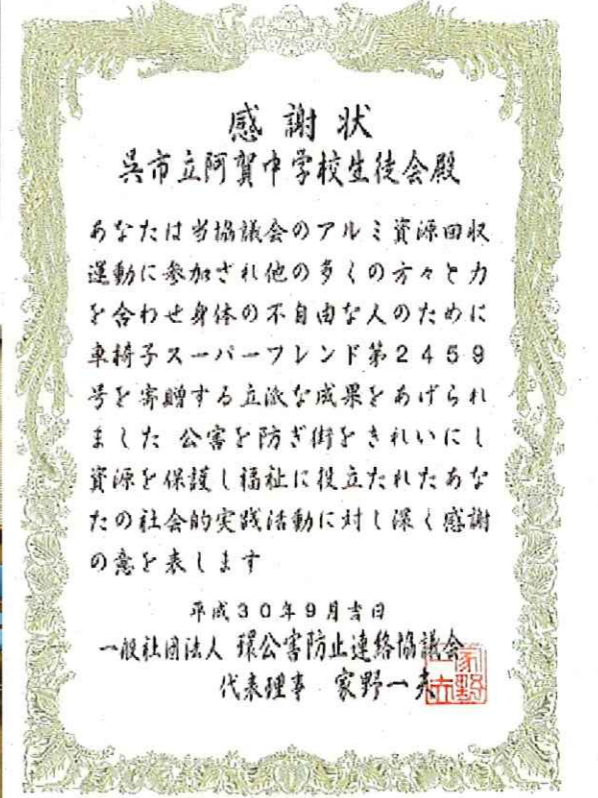 感謝状
呉市立阿賀中学校生徒会殿
あなたは当協議会のアルミ資源回収
運動に参加され他の多くの方々と力
を合わせ身体の不自由な人のために
車椅子スーパーフレンド第2459
号を寄贈する立派な成果をあげられ
ました 公害を防ぎ街をきれいにし
資源を保護し福祉に役立たれたあな
たの社会的実践活動に対し深く感謝
の意を表します
平成30年9月吉日
一般社団法人 環公害防止連絡協議会
代表理事 家野一夫